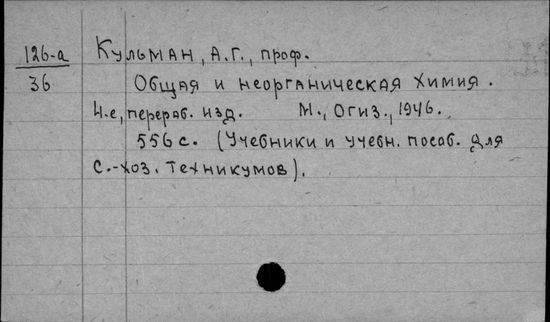 126-а Кульман, А.Г., проф.
36 Общая и неорганическая химия.
4-е, перераб. изд. М., Огиз., 1946.
556 с. (Учебники и учебн. пособ. для
с.-хоз. техникумов).